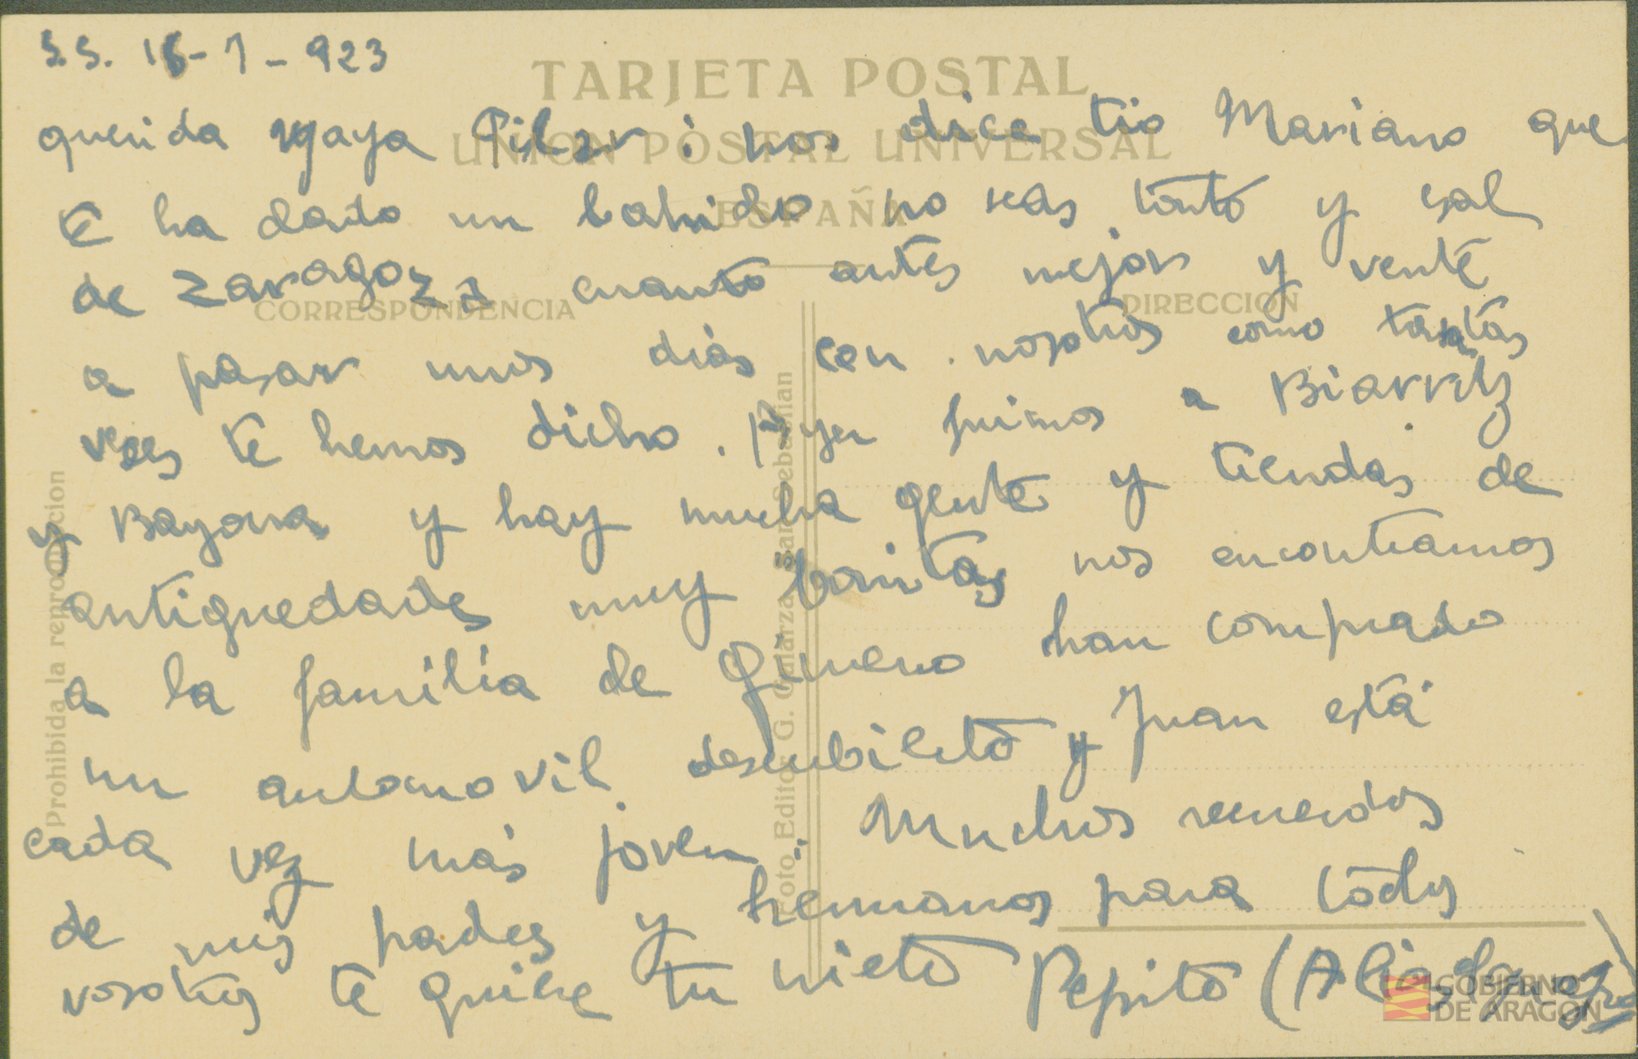 S.S. 16-7-923
TARJETA POSTAL
querida yaya Pilar: nos dice tio Mariano que
UNION POSTAL UNIVERSAL
te ha dado un bahido no seas tonto y sal
ESPAÑA
de Zaragoza cuanto antes mejor y vente
CORRESPONDENCIA
DIRECCION
a pasar unos dias con nosotros como tantas
veces te hemos dicho. Ayer fuimos a Biarritz
y Bayona y hay mucha gente y tiendas de
antiguedades muy bonitas nos encontramos
a la familia de Gimeno han comprado
un automovil descubileto y Juan está
cada vez más joven. Muchos recuerdos
de mis padres y hermanos para todos
vosotros te quiere tu nieto Pepito
Prohibida la reproduccion
Foto Editor G. Galarza San Sebastian
GOBIERNO
DE ARAGON